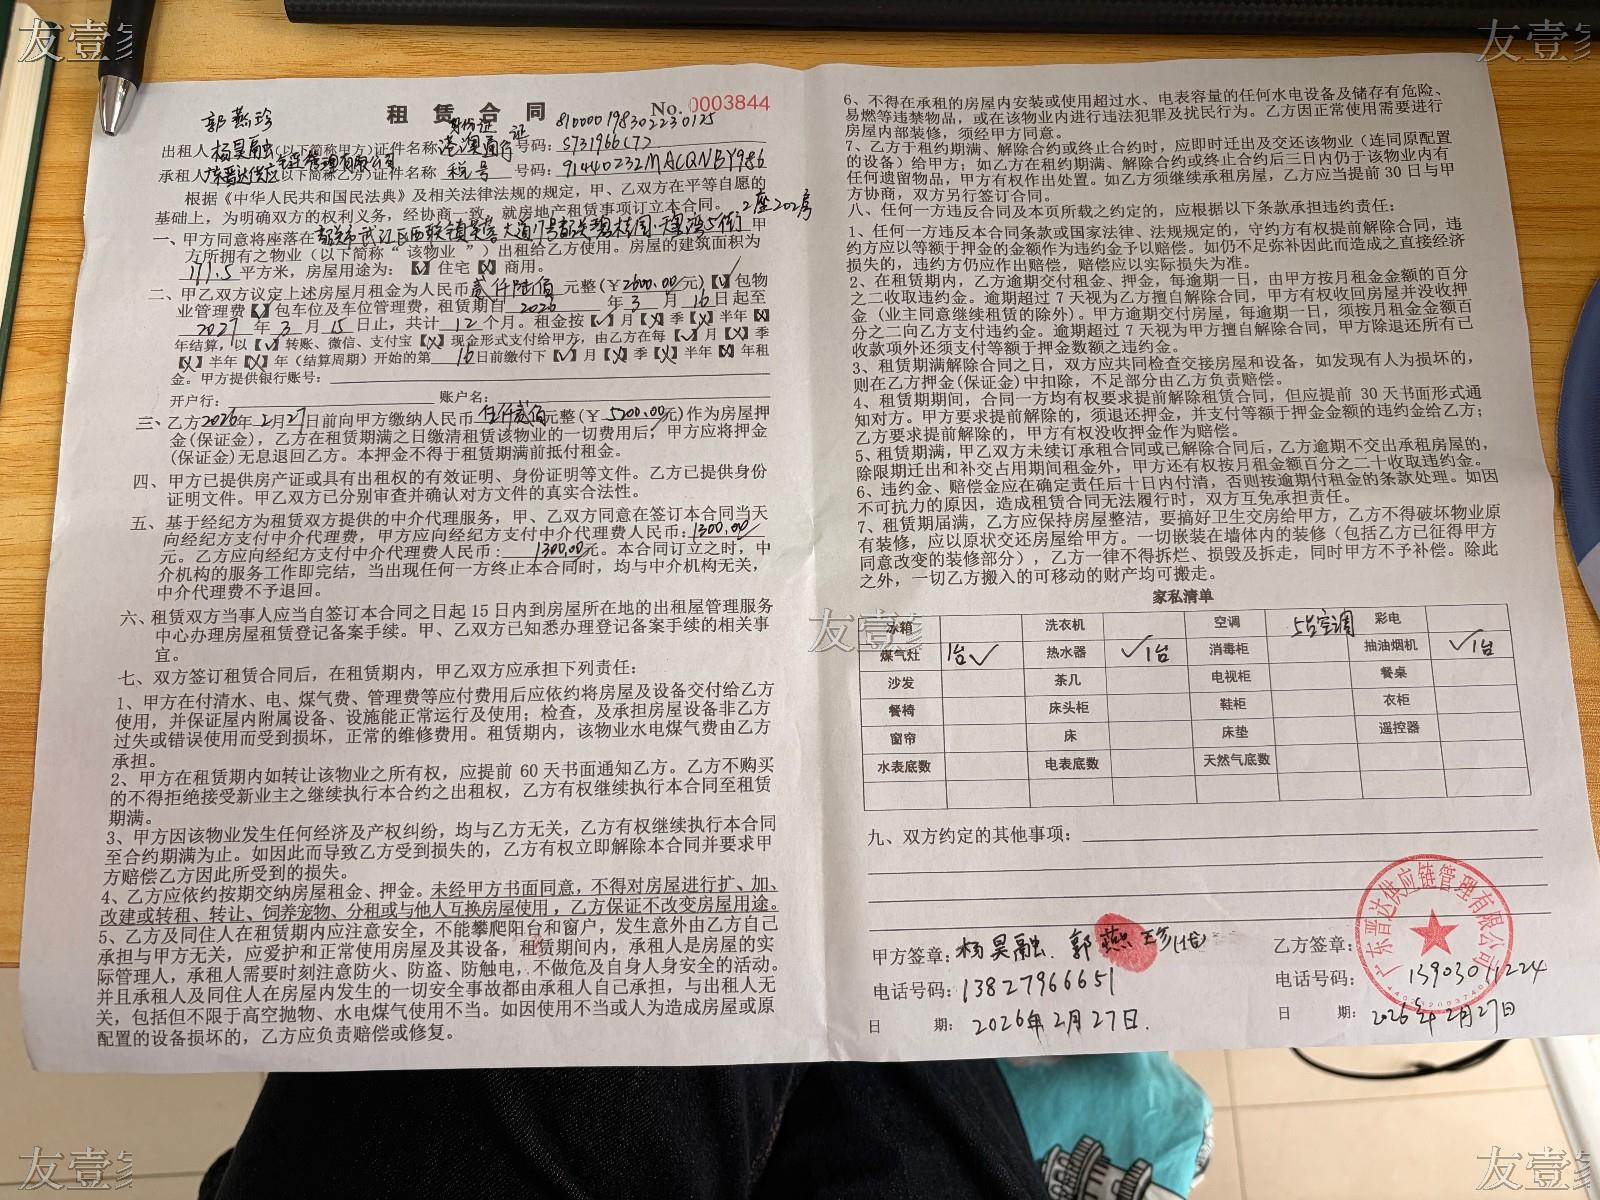 友壹
友壹
租 赁 合 同 No. 0003844
郭燕珍 身份证 810000198302230125
出租人 杨昊融 (以下简称甲方)证件名称 港澳通行证 号码:
承租人 广东晋达供应链管理有限公司 以下简称乙方)证件名称 税号 号码: 91440232MACQNBY986
根据《中华人民共和国民法典》及相关法律法规的规定,甲、乙双方在平等自愿的
基础上,为明确双方的权利义务,经协商一致,就房地产租赁事项订立本合同。 2座202房
一、甲方同意将座落在 韶关市武江区西联镇芙蓉大道17号韶关碧桂园 5街 甲
方所拥有之物业(以下简称“该物业”)出租给乙方使用。房屋的建筑面积为
171.5 平方米,房屋用途为:【√】住宅【X】商用。
二、甲乙双方议定上述房屋月租金为人民币 贰仟陆佰 元整(¥2600.00元)【√】包物
业管理费【√】包车位及车位管理费,租赁期自 2026 年 3 月 16 日起至
2027 年 3 月 15 日止,共计 12 个月。租金按【√】月【X】季【X】半年【X】
年结算,以【√】转账、微信、支付宝【X】现金形式支付给甲方,由乙方在每【√】月【X】季
【X】半年【X】年(结算周期)开始的第 16 日前缴付下【√】月【X】季【X】半年【X】年租
金。甲方提供银行账号:
开户行: 账户名:
三、乙方2026年2月27日前向甲方缴纳人民币 伍仟贰佰 元整(¥5200.00元)作为房屋押
金(保证金),乙方在租赁期满之日缴清租赁该物业的一切费用后,甲方应将押金
(保证金)无息退回乙方。本押金不得于租赁期满前抵付租金。
四、甲方已提供房产证或具有出租权的有效证明、身份证明等文件。乙方已提供身份
证明文件。甲乙双方已分别审查并确认对方文件的真实合法性。
五、基于经纪方为租赁双方提供的中介代理服务,甲、乙双方同意在签订本合同当天
向经纪方支付中介代理费,甲方应向经纪方支付中介代理费人民币:1300.00
元。乙方应向经纪方支付中介代理费人民币: 1300.00元。本合同订立之时,中
介机构的服务工作即完结,当出现任何一方终止本合同时,均与中介机构无关,
中介代理费不予退回。
六、租赁双方当事人应当自签订本合同之日起 15 日内到房屋所在地的出租屋管理服务
中心办理房屋租赁登记备案手续。甲、乙双方已知悉办理登记备案手续的相关事
宜。
七、双方签订租赁合同后,在租赁期内,甲乙双方应承担下列责任:
1、甲方在付清水、电、煤气费、管理费等应付费用后应依约将房屋及设备交付给乙方
使用,并保证屋内附属设备、设施能正常运行及使用;检查,及承担房屋设备非乙方
过失或错误使用而受到损坏,正常的维修费用。租赁期内,该物业水电煤气费由乙方
承担。
2、甲方在租赁期内如转让该物业之所有权,应提前 60 天书面通知乙方。乙方不购买
的不得拒绝接受新业主之继续执行本合约之出租权,乙方有权继续执行本合同至租赁
期满。
3、甲方因该物业发生任何经济及产权纠纷,均与乙方无关,乙方有权继续执行本合同
至合约期满为止。如因此而导致乙方受到损失的,乙方有权立即解除本合同并要求甲
方赔偿乙方因此所受到的损失。
4、乙方应依约按期交纳房屋租金、押金。未经甲方书面同意,不得对房屋进行扩、加、
改建或转租、转让、饲养宠物、分租或与他人互换房屋使用,乙方保证不改变房屋用途。
5、乙方及同住人在租赁期内应注意安全,不能攀爬阳台和窗户,发生意外由乙方自己
承担与甲方无关,应爱护和正常使用房屋及其设备,租赁期间内,承租人是房屋的实
际管理人,承租人需要时刻注意防火、防盗、防触电,不做危及自身人身安全的活动。
并且承租人及同住人在房屋内发生的一切安全事故都由承租人自己承担,与出租人无
关,包括但不限于高空抛物、水电煤气使用不当。如因使用不当或人为造成房屋或原
配置的设备损坏的,乙方应负责赔偿或修复。
6、不得在承租的房屋内安装或使用超过水、电表容量的任何水电设备及储存有危险、
易燃等违禁物品,或在该物业内进行违法犯罪及扰民行为。乙方因正常使用需要进行
房屋内部装修,须经甲方同意。
7、乙方于租约期满、解除合约或终止合约时,应即时迁出及交还该物业(连同原配置
的设备)给甲方;如乙方在租约期满、解除合约或终止合约后三日内仍于该物业内有
任何遗留物品,甲方有权作出处置。如乙方须继续承租房屋,乙方应当提前 30 日与甲
方协商,双方另行签订合同。
八、任何一方违反合同及本页所载之约定的,应根据以下条款承担违约责任:
1、任何一方违反本合同条款或国家法律、法规规定的,守约方有权提前解除合同,违
约方应以等额于押金的金额作为违约金予以赔偿。如仍不足弥补因此而造成之直接经济
损失的,违约方仍应作出赔偿,赔偿应以实际损失为准。
2、在租赁期内,乙方逾期交付租金、押金,每逾期一日,由甲方按月租金金额的百分
之二收取违约金。逾期超过 7 天视为乙方擅自解除合同,甲方有权收回房屋并没收押
金(业主同意继续租赁的除外)。甲方逾期交付房屋,每逾期一日,须按月租金金额百
分之二向乙方支付违约金。逾期超过 7 天视为甲方擅自解除合同,甲方除退还所有已
收款项外还须支付等额于押金数额之违约金。
3、租赁期满解除合同之日,双方应共同检查交接房屋和设备,如发现有人为损坏的,
则在乙方押金(保证金)中扣除,不足部分由乙方负责赔偿。
4、租赁期期间,合同一方均有权要求提前解除租赁合同,但应提前 30 天书面形式通
知对方。甲方要求提前解除的,须退还押金,并支付等额于押金金额的违约金给乙方;
乙方要求提前解除的,甲方有权没收押金作为赔偿。
5、租赁期满,甲乙双方未续订承租合同或已解除合同后,乙方逾期不交出承租房屋的,
除限期迁出和补交占用期间租金外,甲方还有权按月租金额百分之二十收取违约金。
6、违约金、赔偿金应在确定责任后十日内付清,否则按逾期付租金的条款处理。如因
不可抗力的原因,造成租赁合同无法履行时,双方互免承担责任。
7、租赁期届满,乙方应保持房屋整洁,要搞好卫生交房给甲方,乙方不得破坏物业原
有装修,应以原状交还房屋给甲方。一切嵌装在墙体内的装修(包括乙方已征得甲方
同意改变的装修部分),乙方一律不得拆烂、损毁及拆走,同时甲方不予补偿。除此
之外,一切乙方搬入的可移动的财产均可搬走。
家私清单
冰箱 洗衣机 空调 5台空调 彩电
煤气灶 1台√ 热水器 √1台 消毒柜 抽油烟机 √1台
沙发 茶几 电视柜 餐桌
餐椅 床头柜 鞋柜 衣柜
窗帘 床 床垫 遥控器
水表底数 电表底数 天然气底数
九、双方约定的其他事项:
甲方签章: 杨昊融. 郭燕珍(代) 乙方签章:
电话号码: 13827966651 电话号码: 13903011224
日 期: 2026年2月27日. 日 期: 2026年2月27日
广东晋达供应链管理有限公司
友壹
友壹
友壹